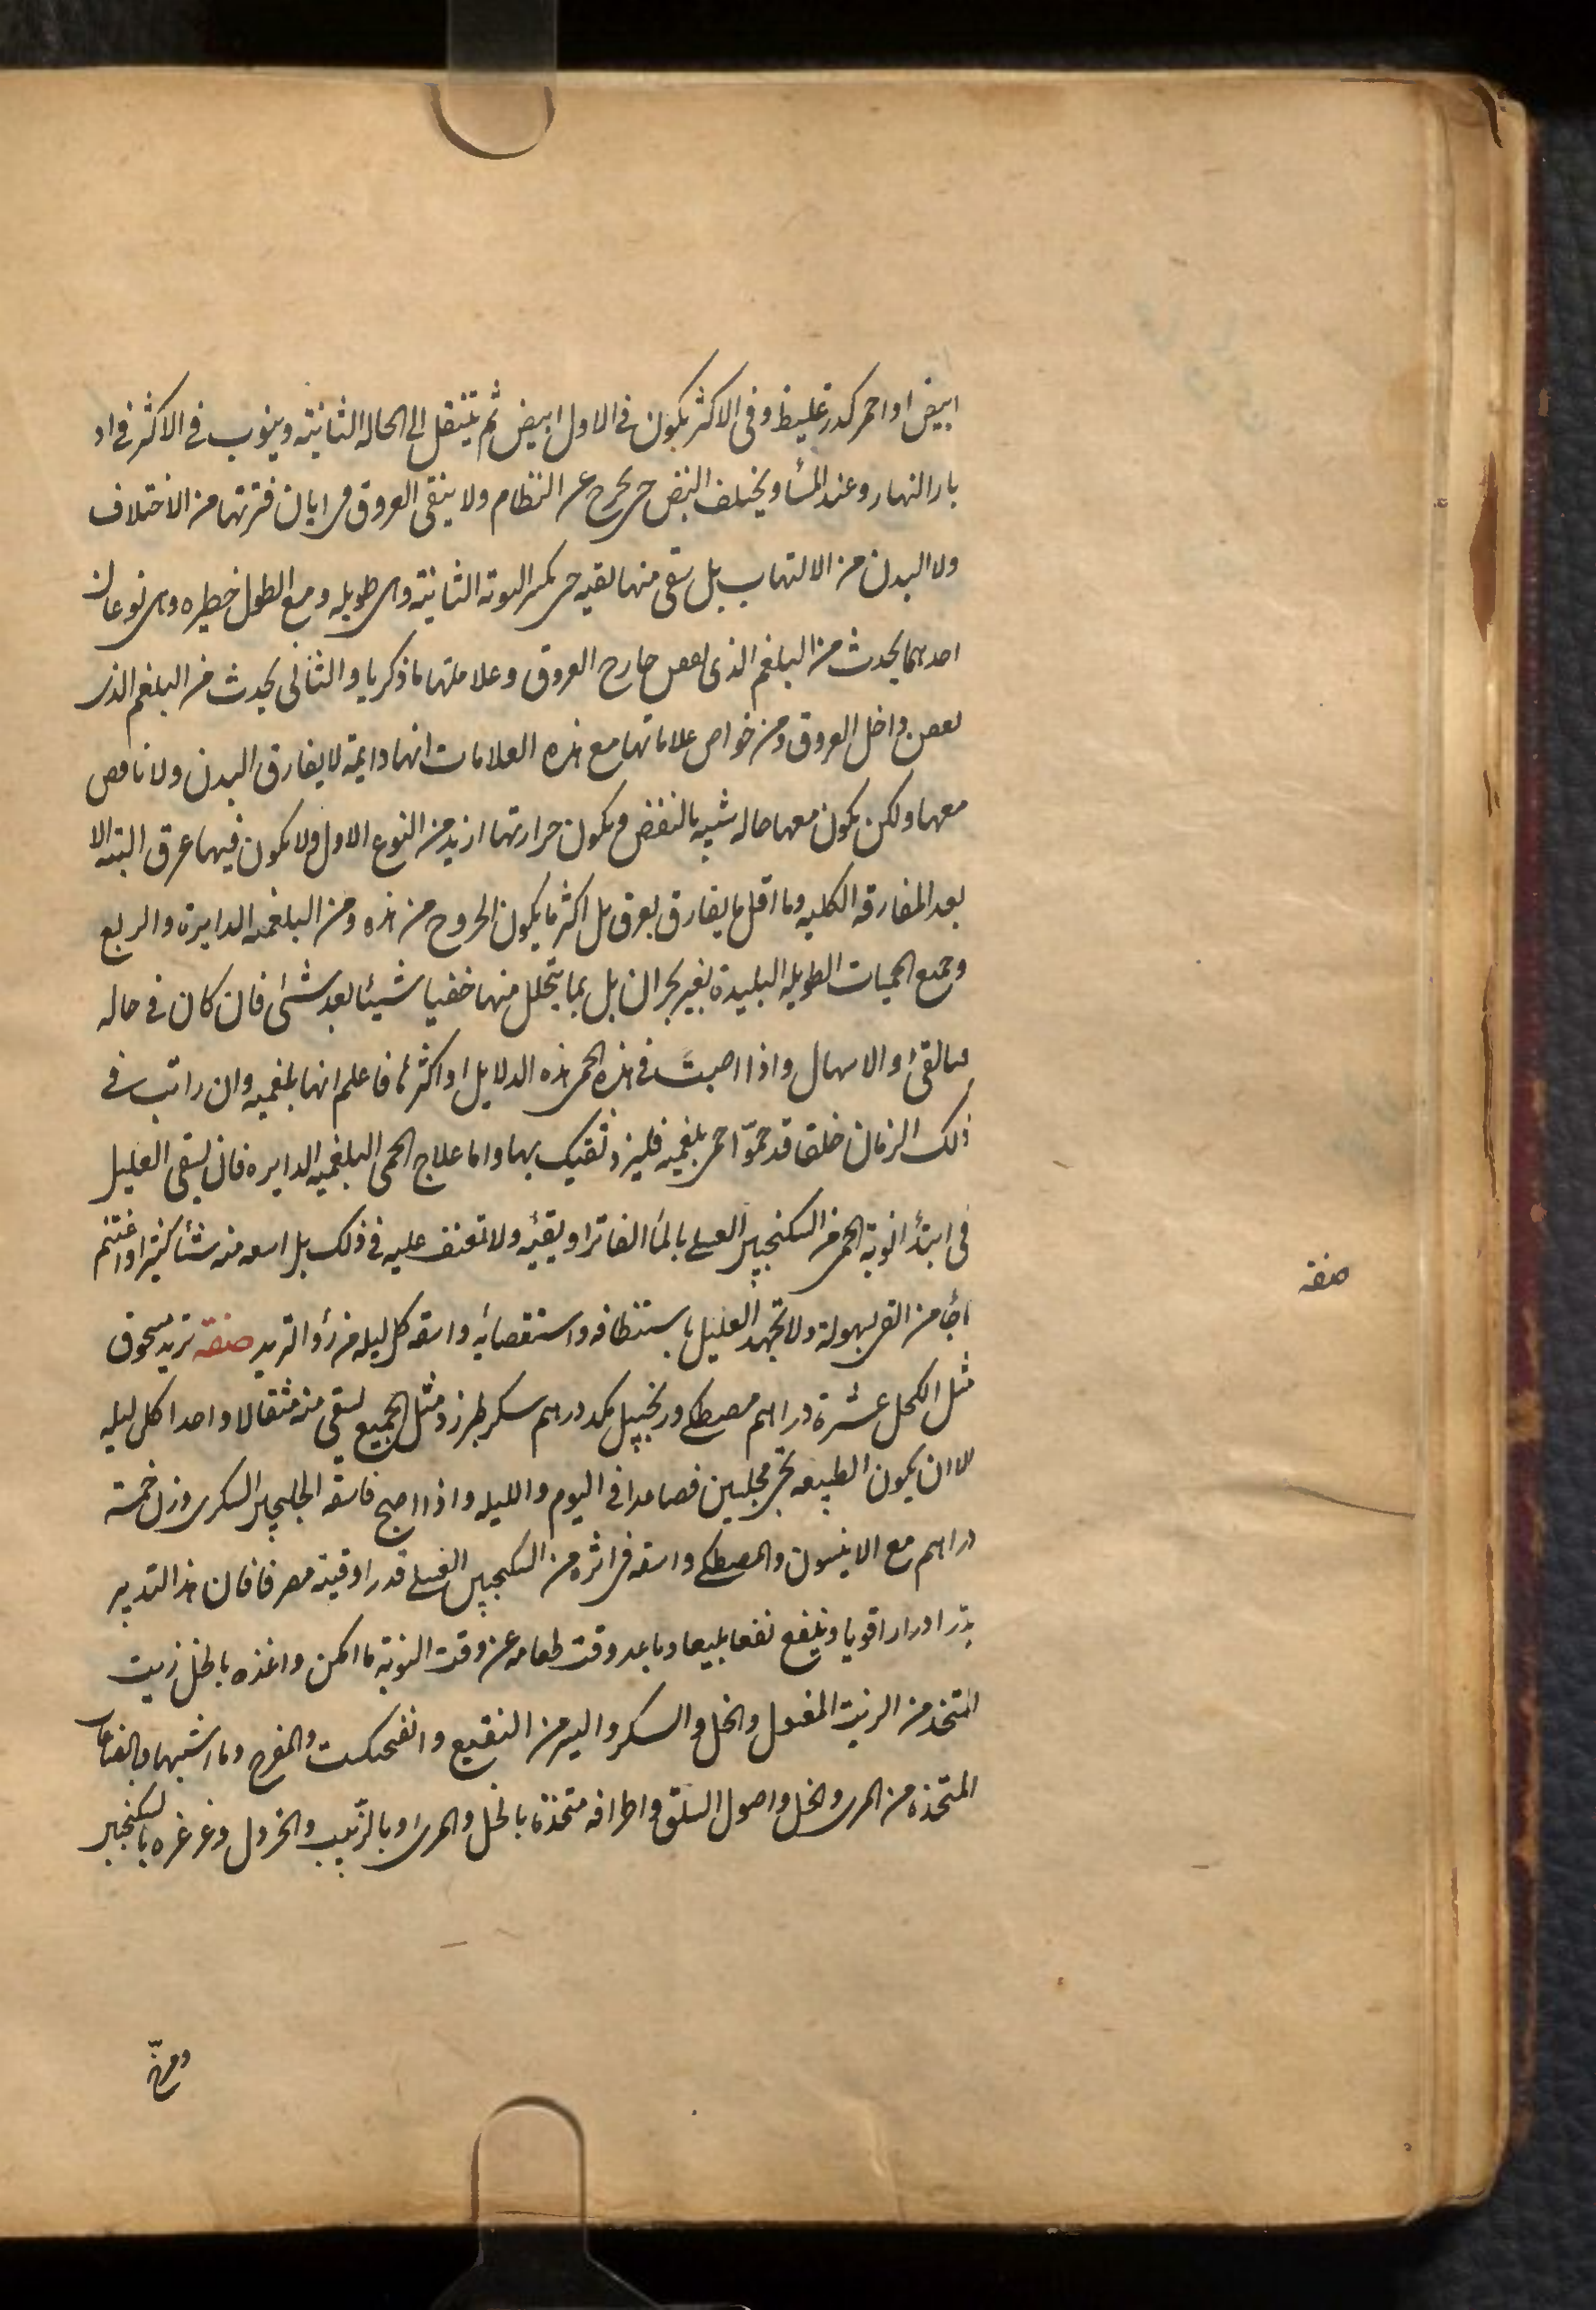 ابيض او احمر كدر غليظ وفى الاكثر يكون فى الاول ابيض ثم ينتقل الى الحاله الثانيته وينوب فى الاكثر فى اد
بار النهار وعند المسأ ويختلف النبض حى يحرج عن النظام ولا ينقى العروق فى ابان فترتها من الاختلاف
ولا البدن من الالتهاب بل يبقى منها بقيه حى يكر النوبه الثانيته وهى طويله ومع الطول خطيره وهى نوعان
احدهما يحدث من البلغم الذى يعفن خارج العروق وعلاماتها ما ذكرنا والثانى يحدث من البلغم الذى
يعفن داخل العروق ومن خواص علاماتها مع هذه العلامات انها دايمة لا يفارق البدن ولا نافض
معها ولكن يكون معها حاله شبيه بالنفض ويكون حرارتها ازيد من النوع الاول ولا يكون فيها عرق البته الا
بعد المفارقه الكليه وما اقل ما يفارق بعرق بل اكثر ما يكون الخروج من هذه ومن البلغميه الدايرة والربع
وجميع الحميات الطويله البليدة بغير بحران بل بما يتحلل منها خفيا شيئا بعد شئ فان كان فى حاله
فبالقئ او الاسهال واذا اصبت فى هذه الحمى هذه الدلايل او اكثرها فاعلم انها بلغميه وان رايت فى
ذلك الزمان خلقا قد حمّوا حمى بلغميه فليزد ثقتك بها واما علاج الحمى البلغميه الدايره فان يسقى العليل
فى ابتدأ نوبة الحمى من السكنجبين العسلى بالمأ الفاتر او يقيئه ولا تعنف عليه فى ذلك بل اسقه منه شئا كثيرا واغتنم
ما جأ من القى بسهولة ولا تجهد العليل باستنظافه واستقصائه واسقه كل ليله من دوأ التربد صفته تربد مسحوق
مثل الكحل عشرة دراهم مصطكى وزنجبيل بكد درهم سكر طبرزد مثل الجميع يسقى منه مثقالا واحدا كل ليله
الا ان يكون الطبيعه تجى مجلسين فصاعدا فى اليوم والليله واذا اصبح فاسقه الجلنجبين السكرى وزن خمسة
دراهم مع الانيسون والمصطكى واسقه فى اثره من السكنجبين العسلى قدر اوقيته مصرفا فان هذا التدبير
يدّر ادرارا قويا وينفع نفعا بليغا وباعد وقت طعامه عن وقت النوبة ما امكن واغذه بالخل زيت
المتخذ من الزيت المغسول والخل والسكر واليسر من النقيع و والمفرح وما اشبهها وبالقنابا
المتخذه من المرى والخل واصول السلق واطرافه متخذة بالخل والمرى او بالزبيب والخردل وغرغره بالسكنجبين
صفته